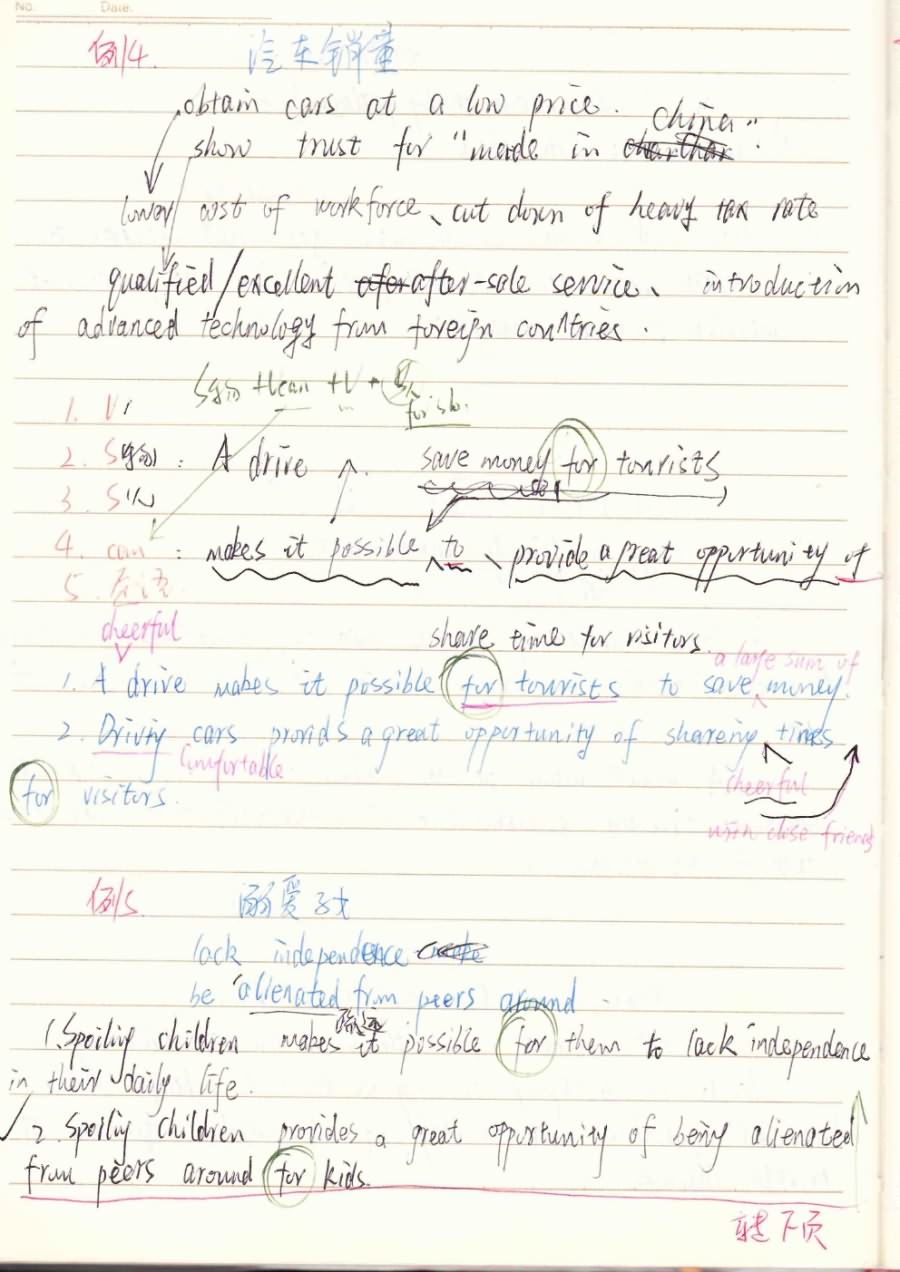 No. Date.
例4. 汽车销量
obtain cars at a low price.
China"
show trust for "made in .
lower cost of workforce、cut down of heavy tax rate
qualified/excellent after-sale service、introduction
of advanced technology from foreign countries.
+Vcan +V +
for sb.
1. V
2. S : A drive save money for tourists
3. S人
4. can : makes it possible to、provide a great opportunity of
5.
cheerful
share time for visitors.
a large sum of
1. A drive makes it possible for tourists to save money.
2. Drivity cars provids a great opportunity of shareing times
Comfortable
for visitors.
cheerful
with close friends
例5. 溺爱孩
lack independence
be alienated from peers around.
疏远
1. Spoiliy children makes it possible for them to lack independence
in their daily life.
2. Spoiliy children provides a great opportunity of being alienated
from peers around for kids.
转下页